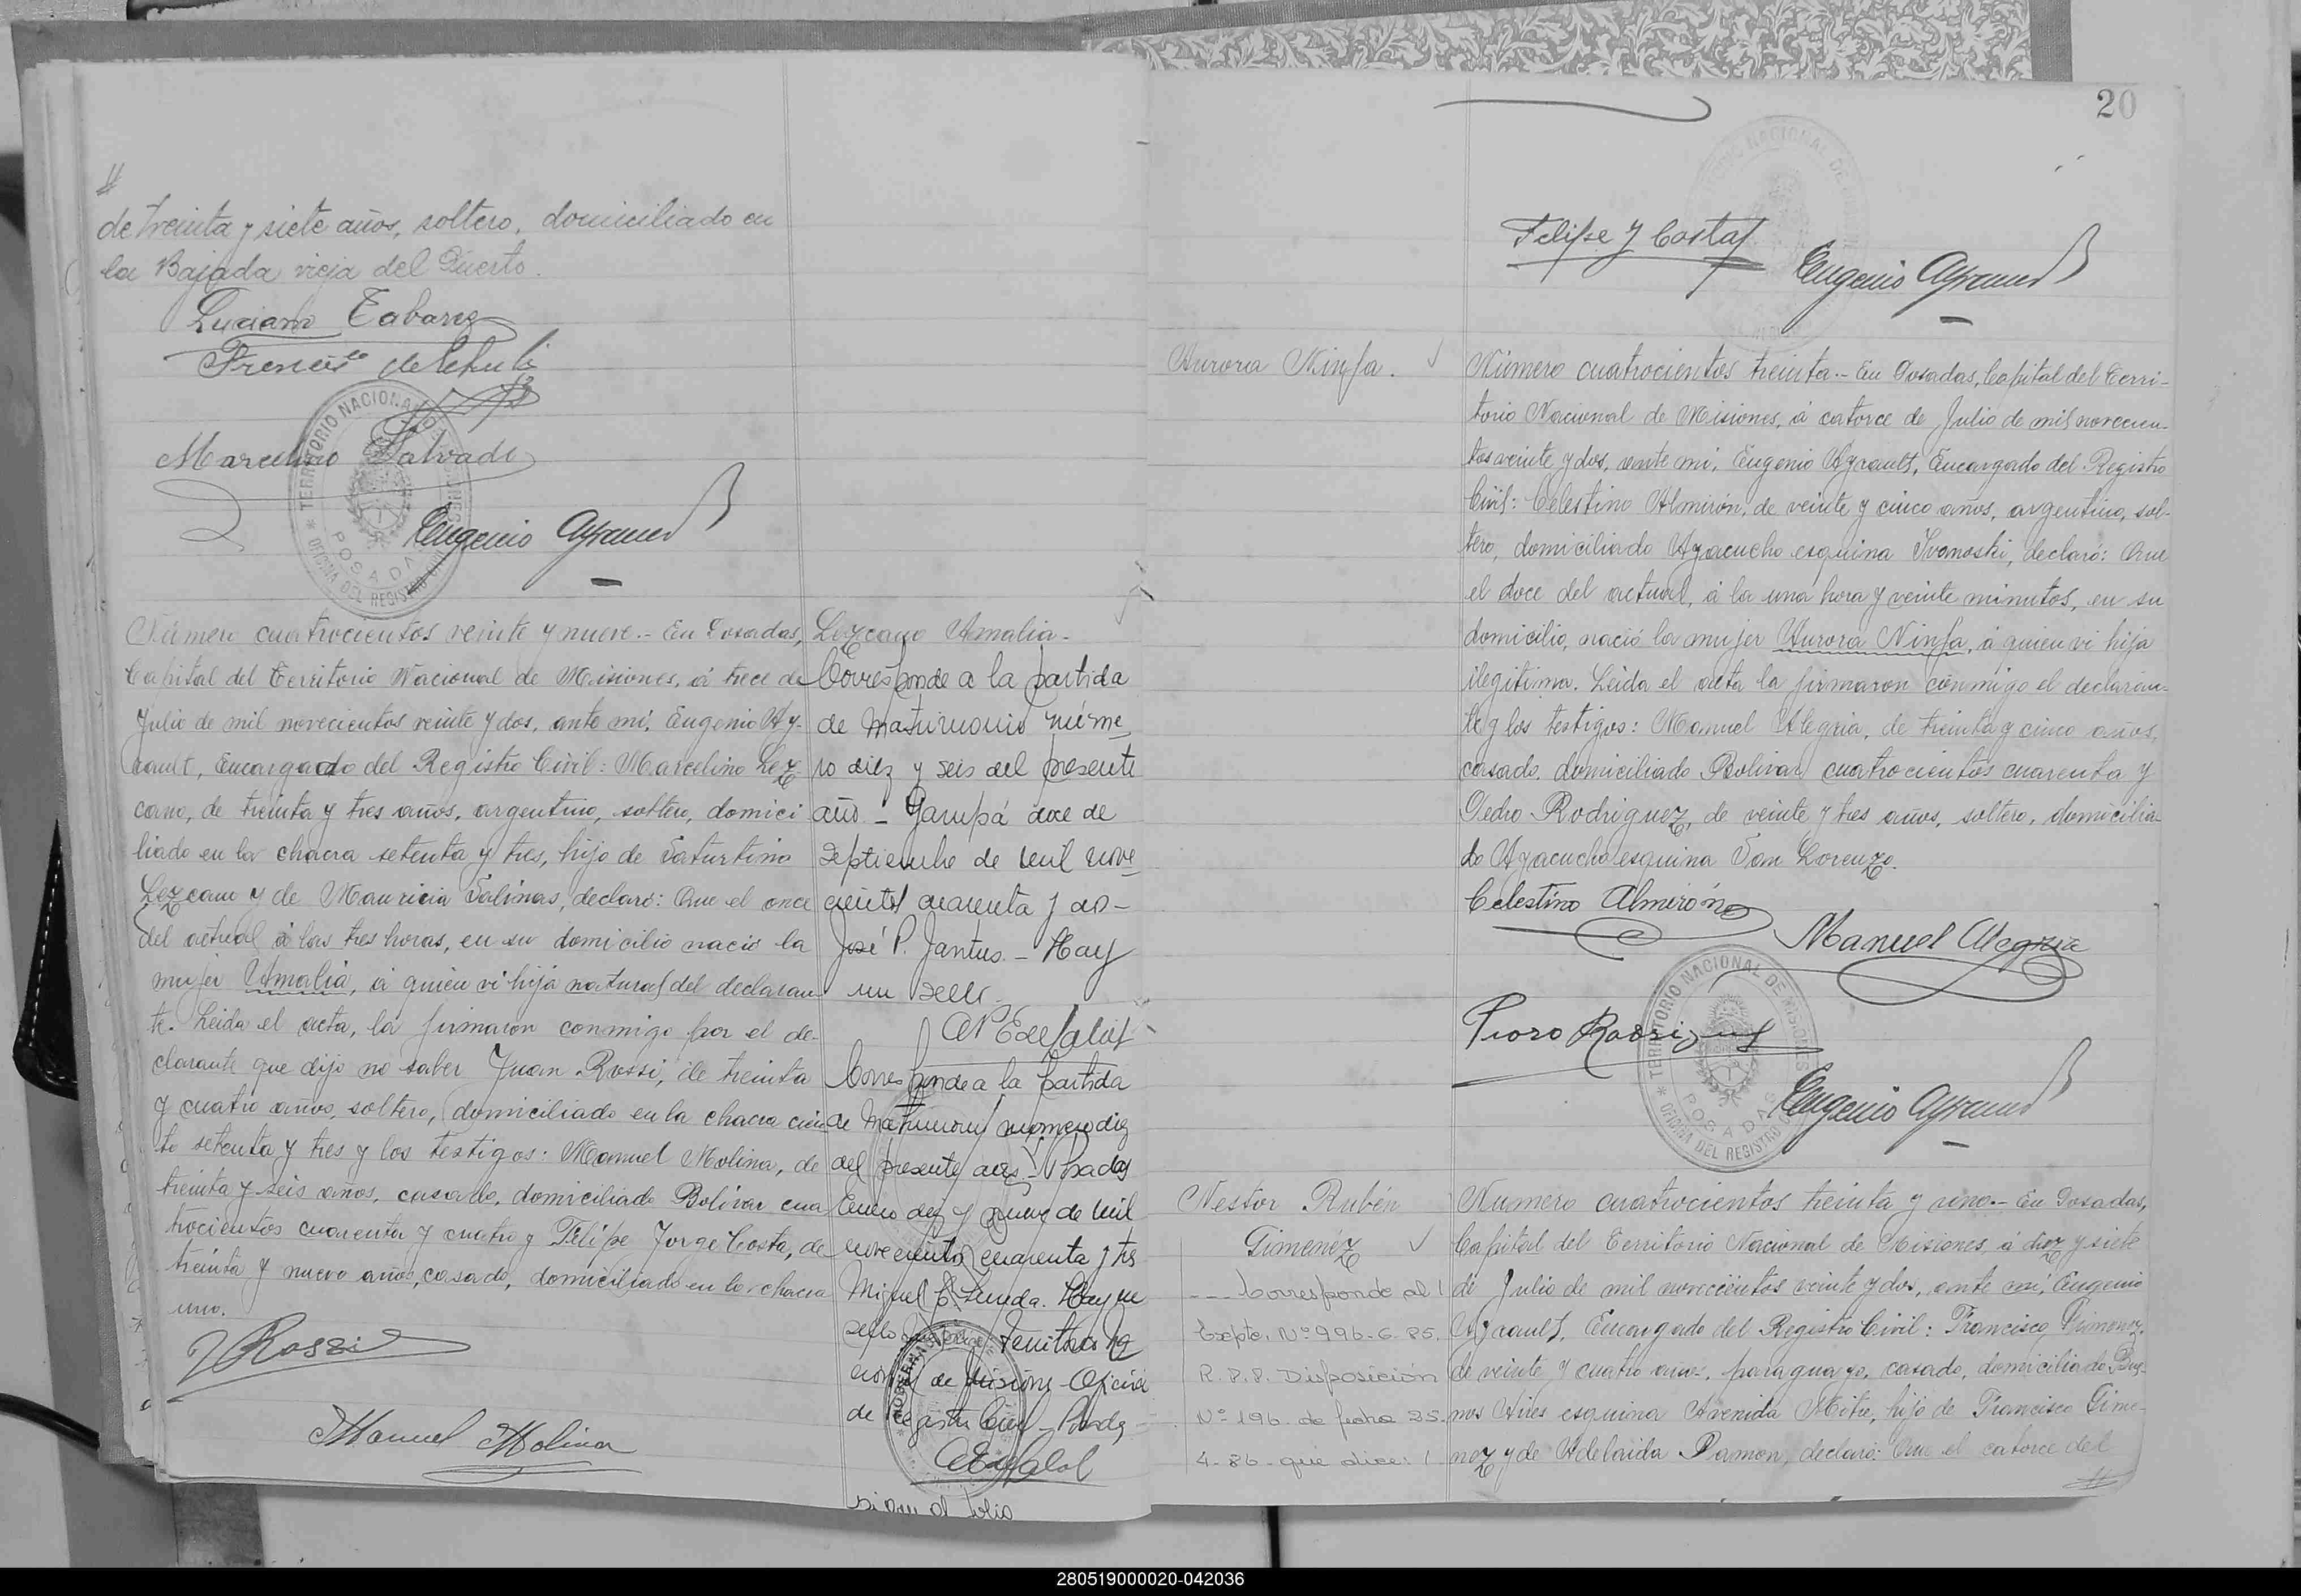 de treinta y siete años, soltero, domiciliado en
la Bajada vieja del Puerto.
Luciano Tabarez
Marcelino Salvado
TERRITORIO NACIONAL
POSADAS
OFICINA DEL REGISTRO CIVIL
Número cuatrocientos veinte y nueve.- En Posadas,
Capital del Territorio Nacional de Misiones, á trece de
Julio de mil novecientos veinte y dos, ante mí, Eugenio Ay-
rault, Encargado del Registro Civil: Marcelino Lez-
cano, de treinta y tres años, argentino, soltero, domici
liado en la chacra setenta y tres, hijo de Saturnino
Lezcano y de Mauricia Salinas, declaró: Que el once
del actual á las tres horas, en su domicilio nació la
mujer Amalia, á quien vi hija natural del declaran-
te. Leida el acta, la firmaron conmigo por el de-
clarante que dijo no saber Juan Rossi, de treinta
y cuatro años, soltero, domiciliado en la chacra cien
to setenta y tres y los testigos: Manuel Molina, de
treinta y seis años, casado, domiciliado Bolívar cua
trocientos cuarenta y cuatro y Felipe Jorge Costa, de
treinta y nueve años, casado, domiciliado en la chacra
uno.
J Rossi
Manuel Molina
Lezcano Amalia-
Corresponde a la partida
de matrimonio núme
ro diez y seis del presente
año - Garupá doce de
Septiembre de mil nove
cientos cuarenta y dos-
José P. Jantus - Hay
un sello-
Corresponde a la partida
de Matrimonio número diez
del presente año - Posadas
Enero diez y nueve de mil
novecientos cuarenta y tres
Miguel Hay un
sello Territorio Na
cional de Misiones - Oficina
de Registro Civil - Posadas
sigue al folio
20
Felipe J Costa
Eugenio Ayrault
Aurora Ninfa.
Número cuatrocientos treinta.- En Posadas, Capital del Terri-
torio Nacional de Misiones, á catorce de Julio de mil novecien-
tos veinte y dos, ante mí, Eugenio Ayrault, Encargado del Registro
Civil: Celestino Almirón, de veinte y cinco años, argentino, sol-
tero, domiciliado Ayacucho esquina Ivanoski, declaró: Que
el doce del actual, á la una hora y veinte minutos, en su
domicilio, nació la mujer Aurora Ninfa, á quien vi hija
ilegitima. Leida el acta la firmaron conmigo el declaran-
te y los testigos: Manuel Alegria, de treinta y cinco años,
casado, domiciliado Bolivar cuatrocientos cuarenta y
Pedro Rodriguez, de veinte y tres años, soltero, domicilia-
do Ayacucho esquina San Lorenzo.
Celestino Almirón
Manuel Alegria
Pedro Rodriguez
TERRITORIO NACIONAL DE MISIONES
POSADAS
OFICINA DEL REGISTRO CIVIL
Eugenio Ayrault
Nestor Rubén
Gimenéz
Corresponde al
Expte. Nº 996-6-85.
R.P.P. Disposición
Nº 196- de fecha 25-
4-86- que dice:
Numero cuatrocientos treinta y uno.- En Posadas,
Capital del Territorio Nacional de Misiones, á diez y siete
de Julio de mil novecientos veinte y dos, ante mí, Eugenio
Ayrault, Encargado del Registro Civil: Francisco Gimenez,
de veinte y cuatro años, paraguayo, casado, domiciliado Bue-
nos Aires esquina Avenida Mitre, hijo de Francisco Gime-
nez y de Adelaida Ramon, declaró: Que el catorce del
280519000020-042036